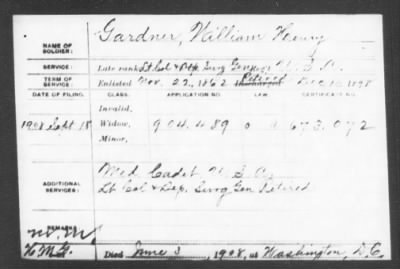 Gardner, William Henry
NAME OF SOLDIER:
SERVICE: Late rank Lt Col & Dep Surg Gen U.S.A.
TERM OF SERVICE: Enlisted Nov. 22, 1862 Discharged Retired Dec 10, 1898
DATE OF FILING. CLASS. APPLICATION NO. LAW. CERTIFICATE NO.
Invalid,
1908 Sept 18 Widow, 904.489 673.072
Minor,
ADDITIONAL SERVICES: Med Cadet U.S.A.
Lt Col & Dep. Surg Gen Retired
REMARKS:
H.M.G.
Died June 3, 1908, at Washington, D.C.